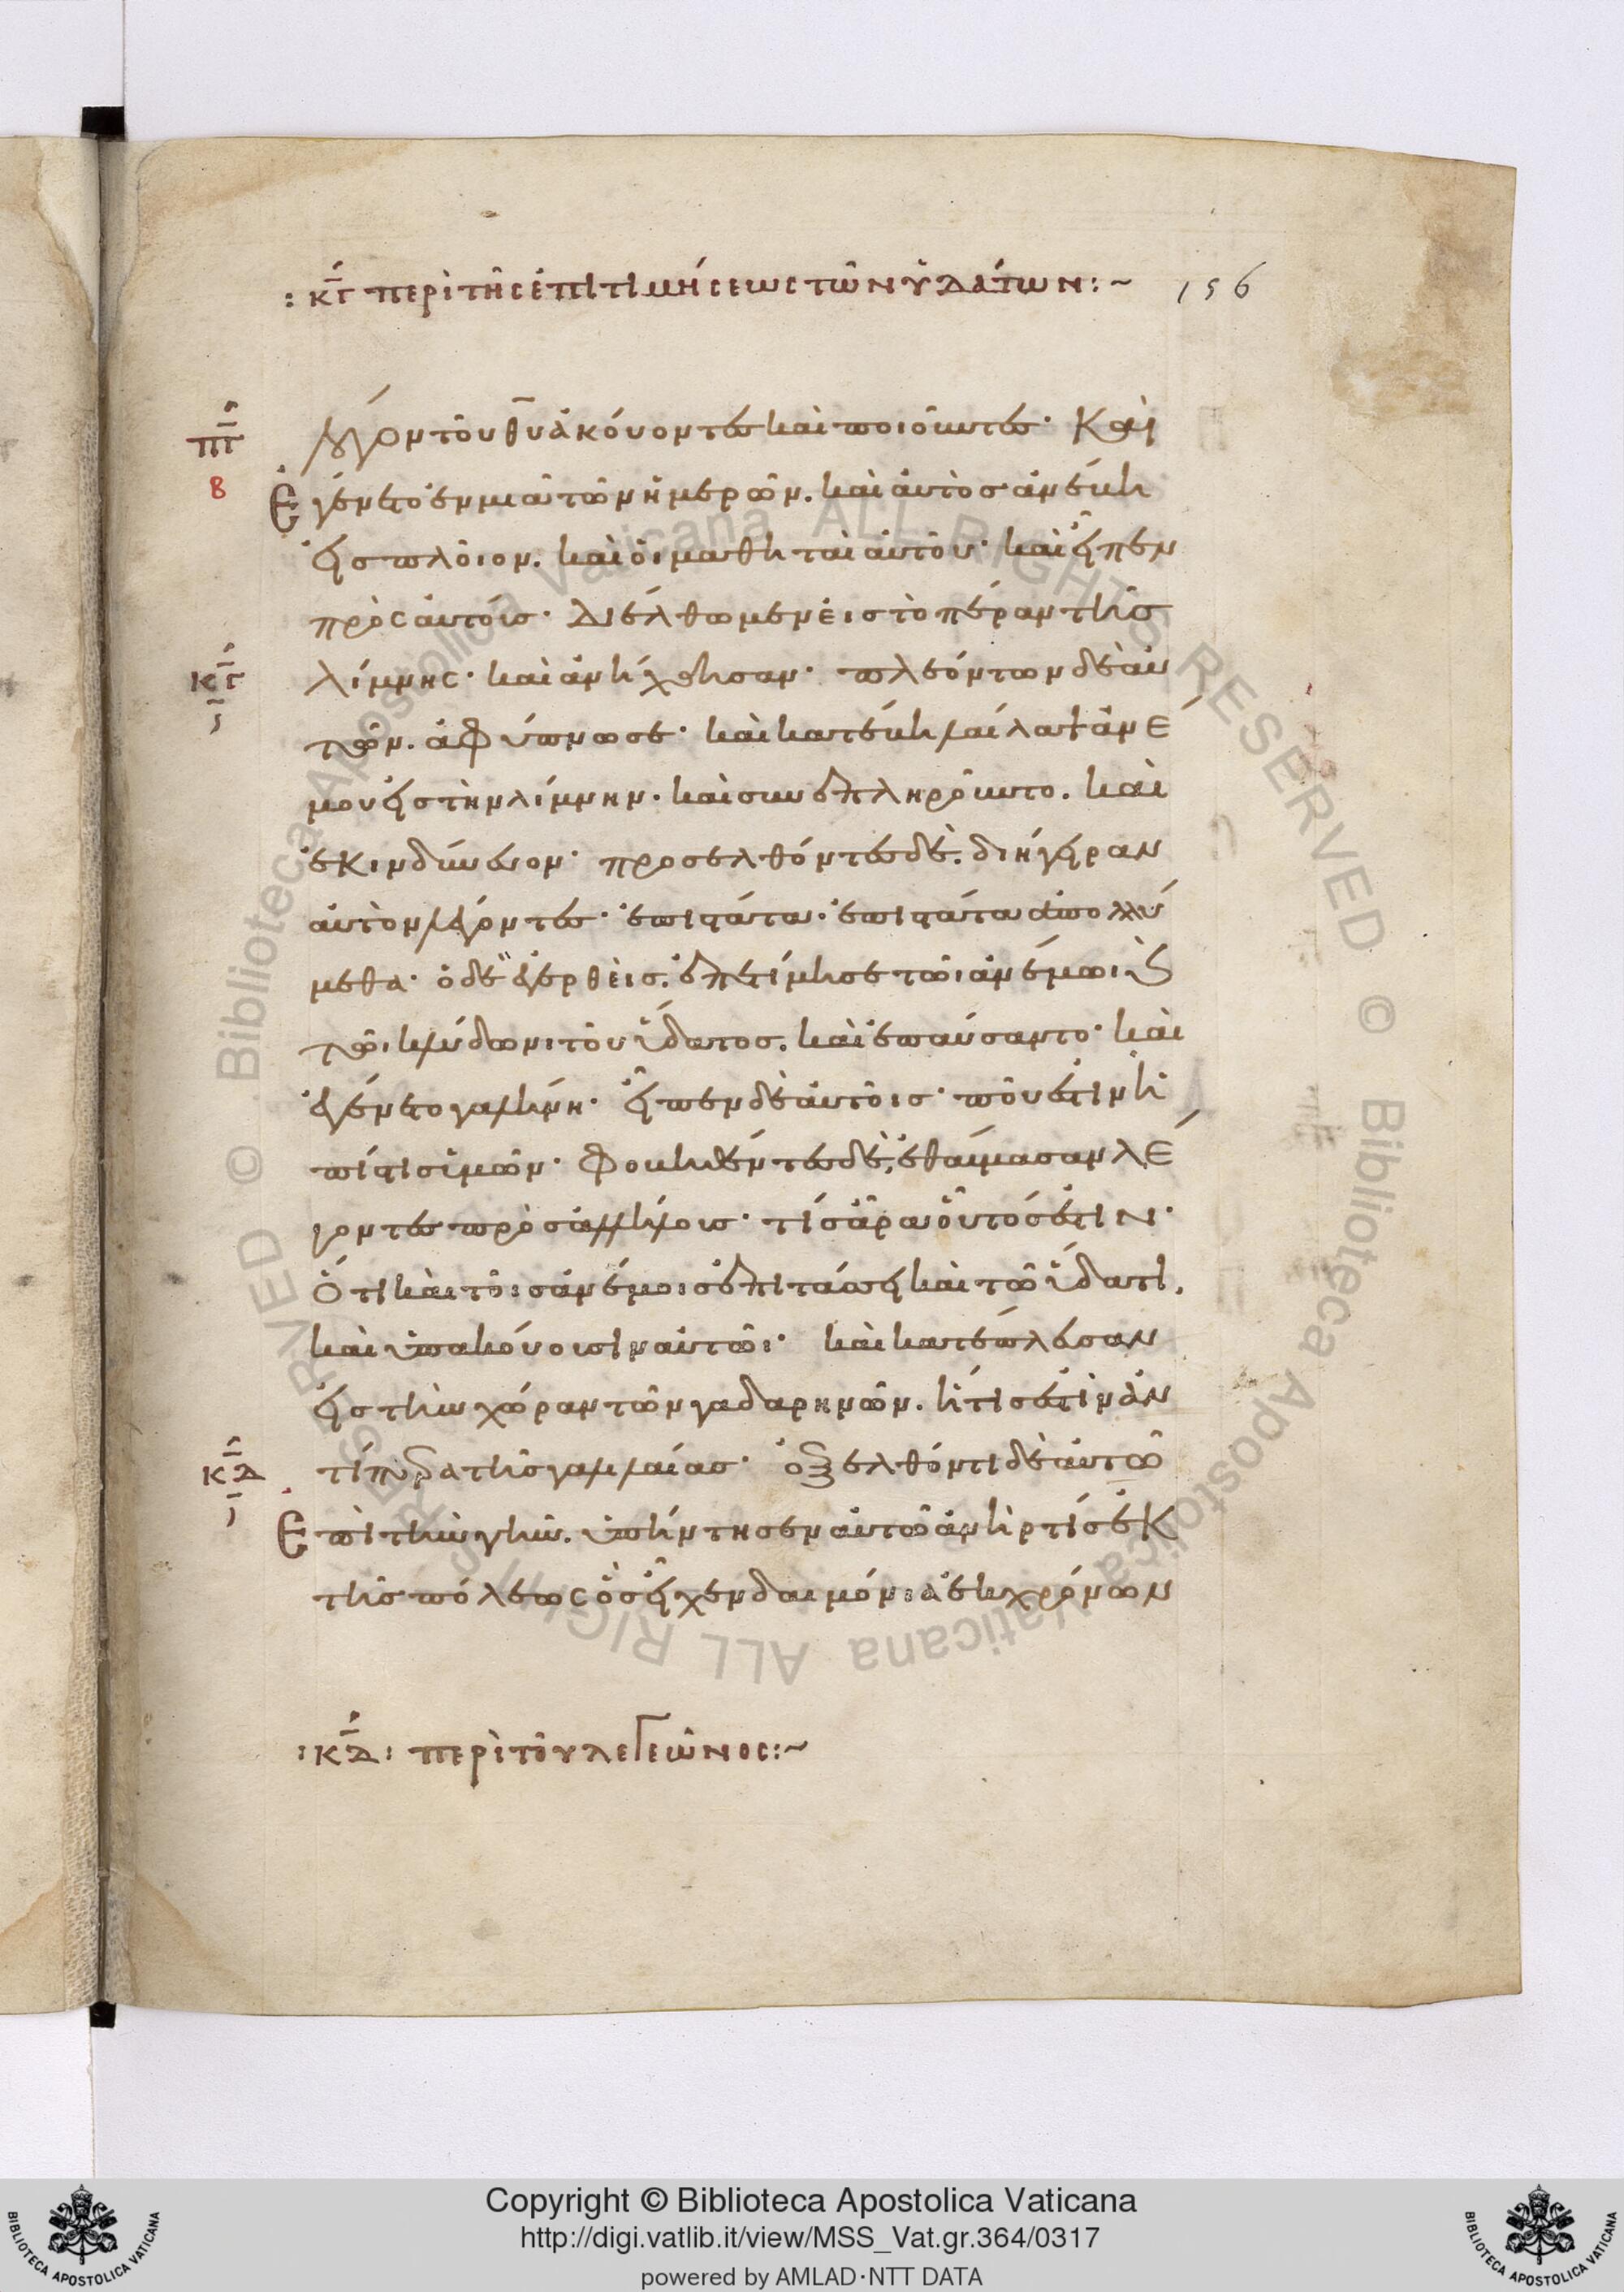 : κγ περὶ τῆς ἐπιτιμήσεως τῶν ὑδάτων :~ 156
πγ
β
λόγον τοῦ θυ ἀκούοντες καὶ ποιοῦντες· Καὶ
ἐγένετο ἐν μιᾶ τῶν ἡμερῶν. καὶ αὐτὸς ἀνέβη
εἰς πλοῖον. καὶ οἱ μαθηταὶ αὐτοῦ· καὶ εἶπεν
πρὸς αὐτούς· Διέλθωμεν εἰς τὸ πέραν τῆς
κγ
λίμνης· καὶ ἀνήχθησαν· πλεόντων δὲ αὐ
τῶν. ἀφύπνωσε· καὶ κατέβη λαίλαψ ἀνέ
μου εἰς τὴν λίμνην. καὶ συνεπληροῦντο. καὶ
ἐκινδύνευον· προσελθόντες δὲ. διήγειραν
αὐτὸν λέγοντες· ἐπιστάτα. ἐπιστάτα ἀπολλύ
μεθα· ὁ δὲ ἐγερθεὶς. ἐπετίμησε τῶι ἀνέμωι καὶ
τῶι κλύδωνι τοῦ ὕδατος. καὶ ἐπαύσαντο· καὶ
ἐγένετο γαλήνη· εἶπεν δὲ αὐτοῖς· ποῦ ἐστιν ἡ
πίστις ὑμῶν· φοβηθέντες δὲ, ἐθαύμασαν λέ
γοντες πρὸς ἀλλήλους· τίς ἄρα οὗτός ἐστιν·
ὅτι καὶ τοῖς ἀνέμοις ἐπιτάσσει καὶ τῶ ὕδατι.
καὶ ὑπακούουσιν αὐτῶι· καὶ κατέπλευσαν
εἰς τὴν χώραν τῶν γαδαρηνῶν. ἥτις ἐστὶν ἀν
κδ
τίπερα τῆς γαλιλαίας· ἐξελθόντι δὲ αὐτῶ
ἐπὶ τὴν γῆν. ὑπήντησεν αὐτῶ ἀνὴρ τίς ἐκ
τῆς πόλεως ὃς εἶχεν δαιμόνια ἐκ χρόνων
: κδ : περὶ τοῦ λεγεῶνος :~
Copyright © Biblioteca Apostolica Vaticana
http://digi.vatlib.it/view/MSS_Vat.gr.364/0317
powered by AMLAD·NTT DATA
BIBLIOTECA APOSTOLICA VATICANA
BIBLIOTECA APOSTOLICA VATICANA
© Biblioteca Apostolica Vaticana ALL RIGHTS RESERVED © Biblioteca Apostolica Vaticana ALL RIGHTS RESERVED